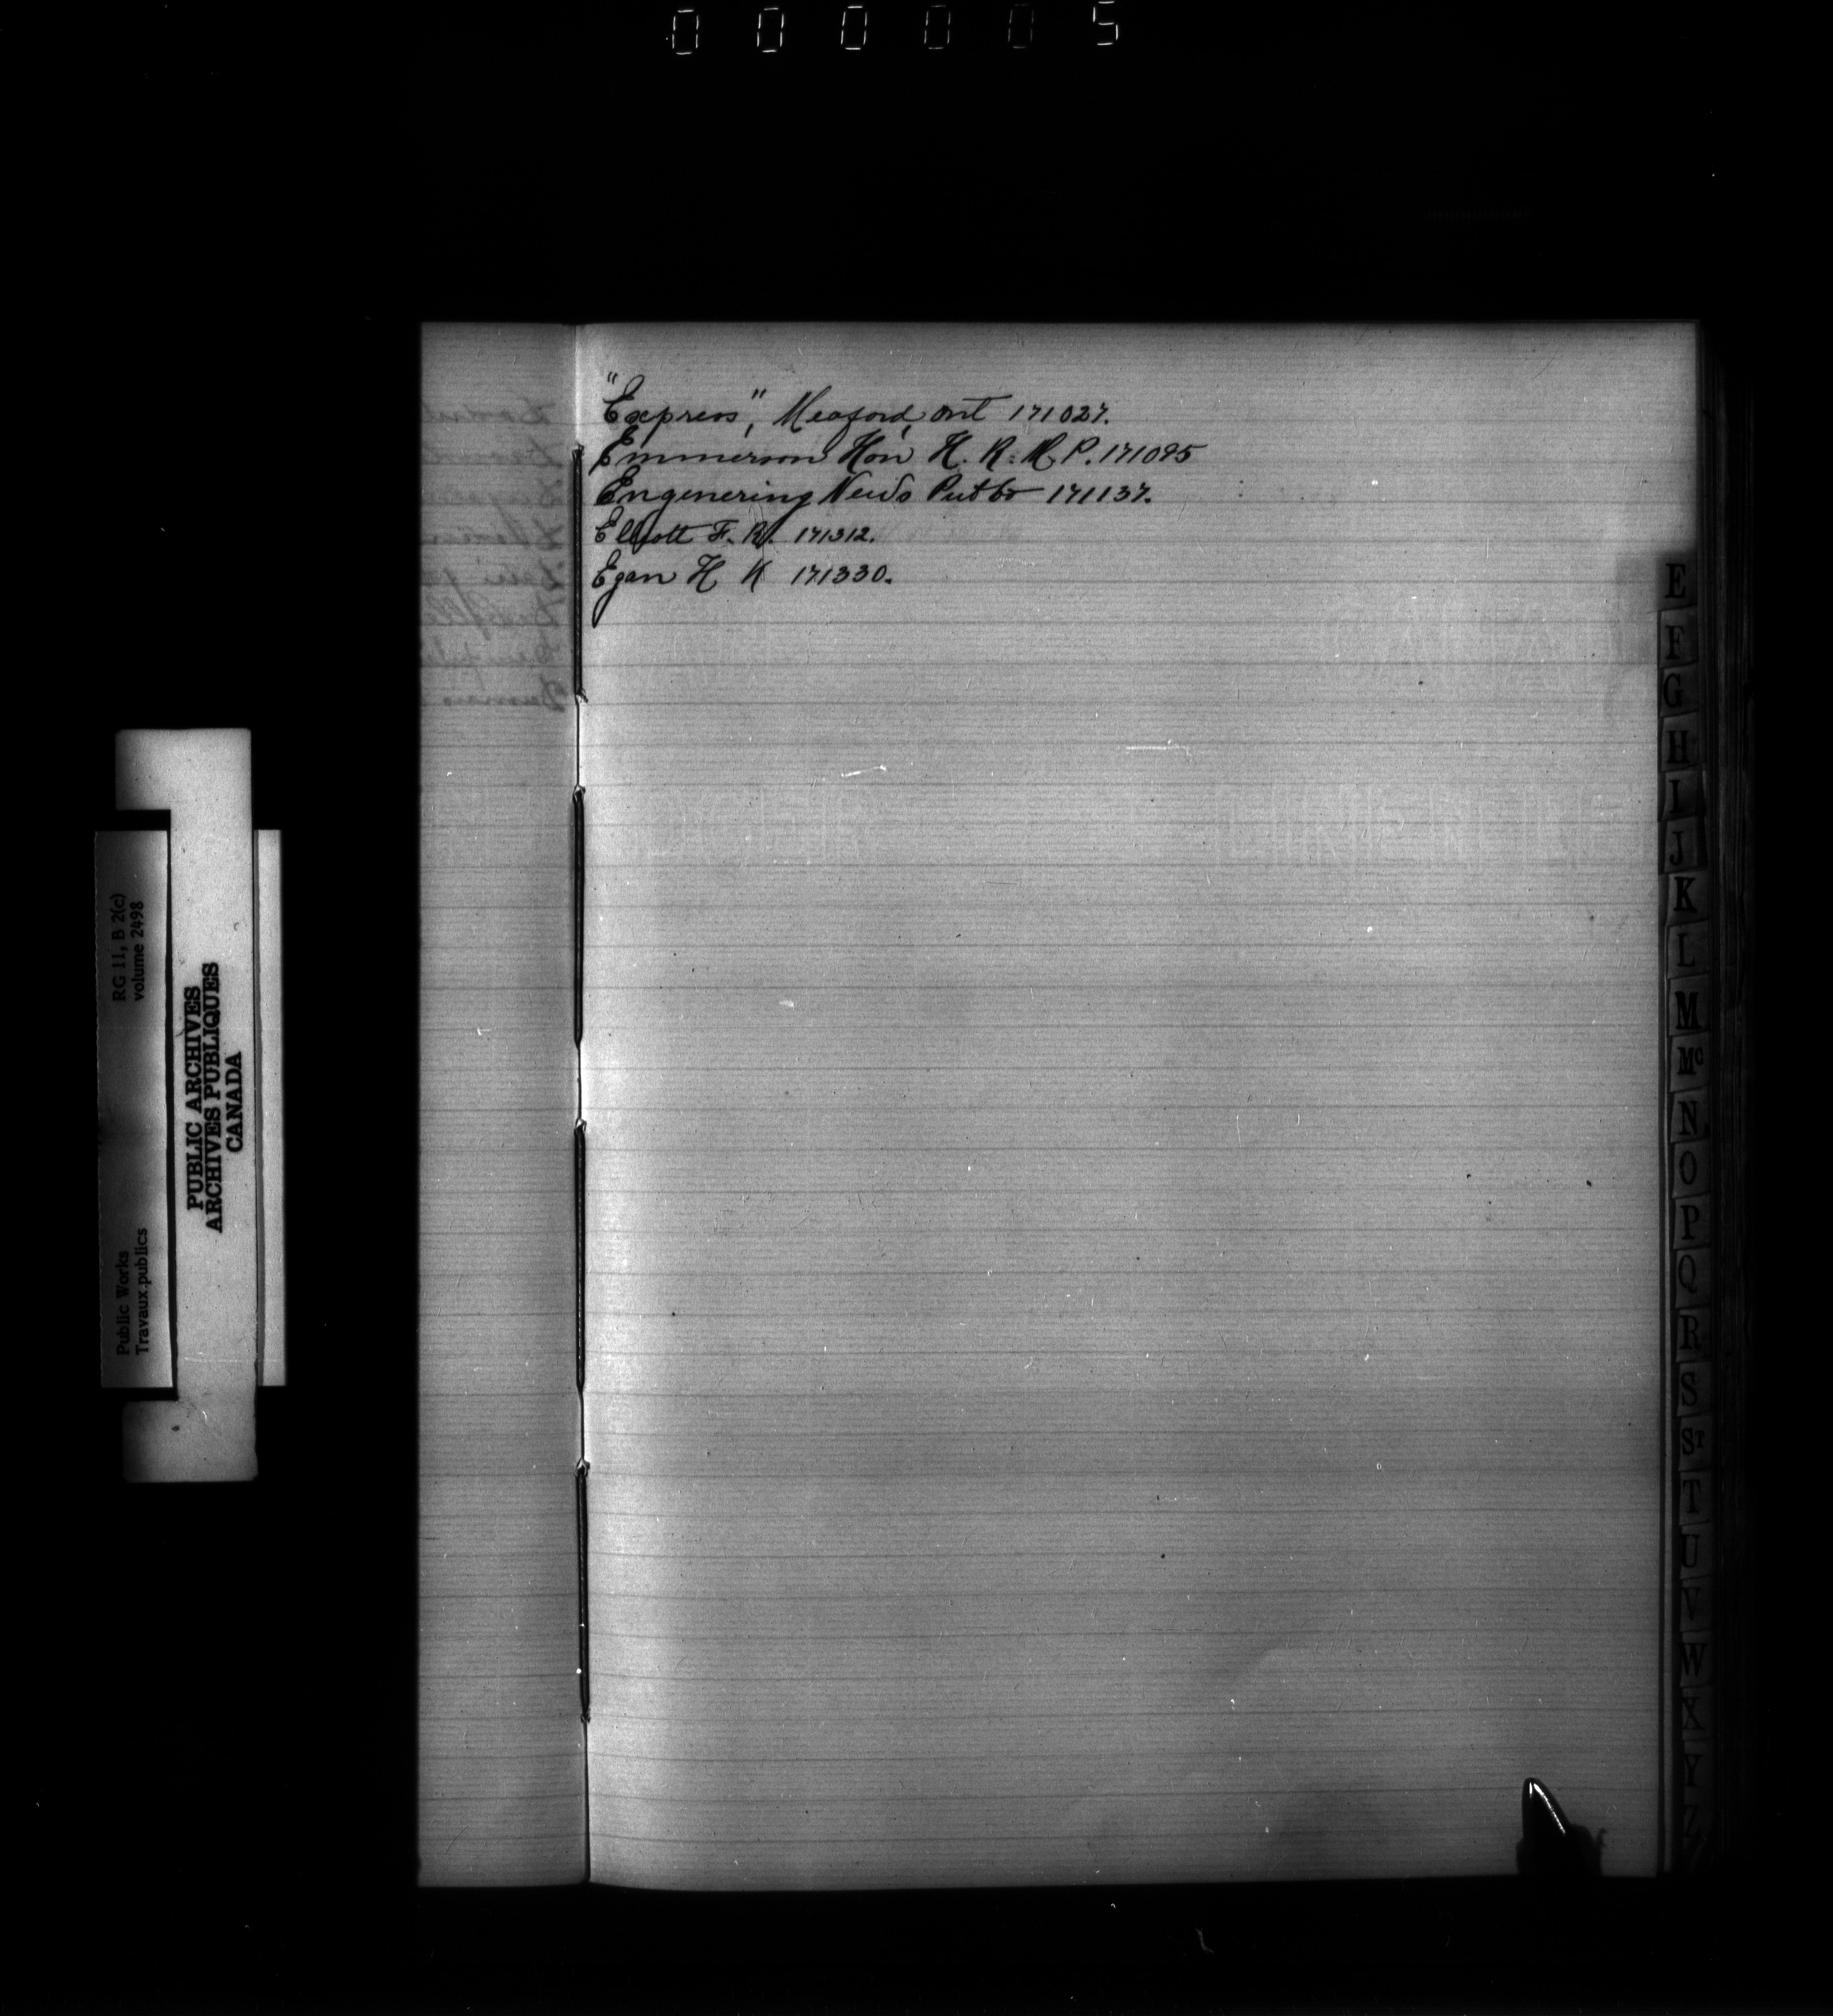 000005
"Express", Meaford, Ont 171027.
Emmerson Hon H. R. M. P. 171095
Engenering News Pub Co 171137.
Elliott F. R. 171312.
Egan H K 171330.
E
F
G
H
I
J
K
L
M
Mc
N
O
P
Q
R
S
ST
T
U
V
W
X
Y
Z
RG 11, B 2(c)
volume 2498
PUBLIC ARCHIVES
ARCHIVES PUBLIQUES
CANADA
Public Works
Travaux publics